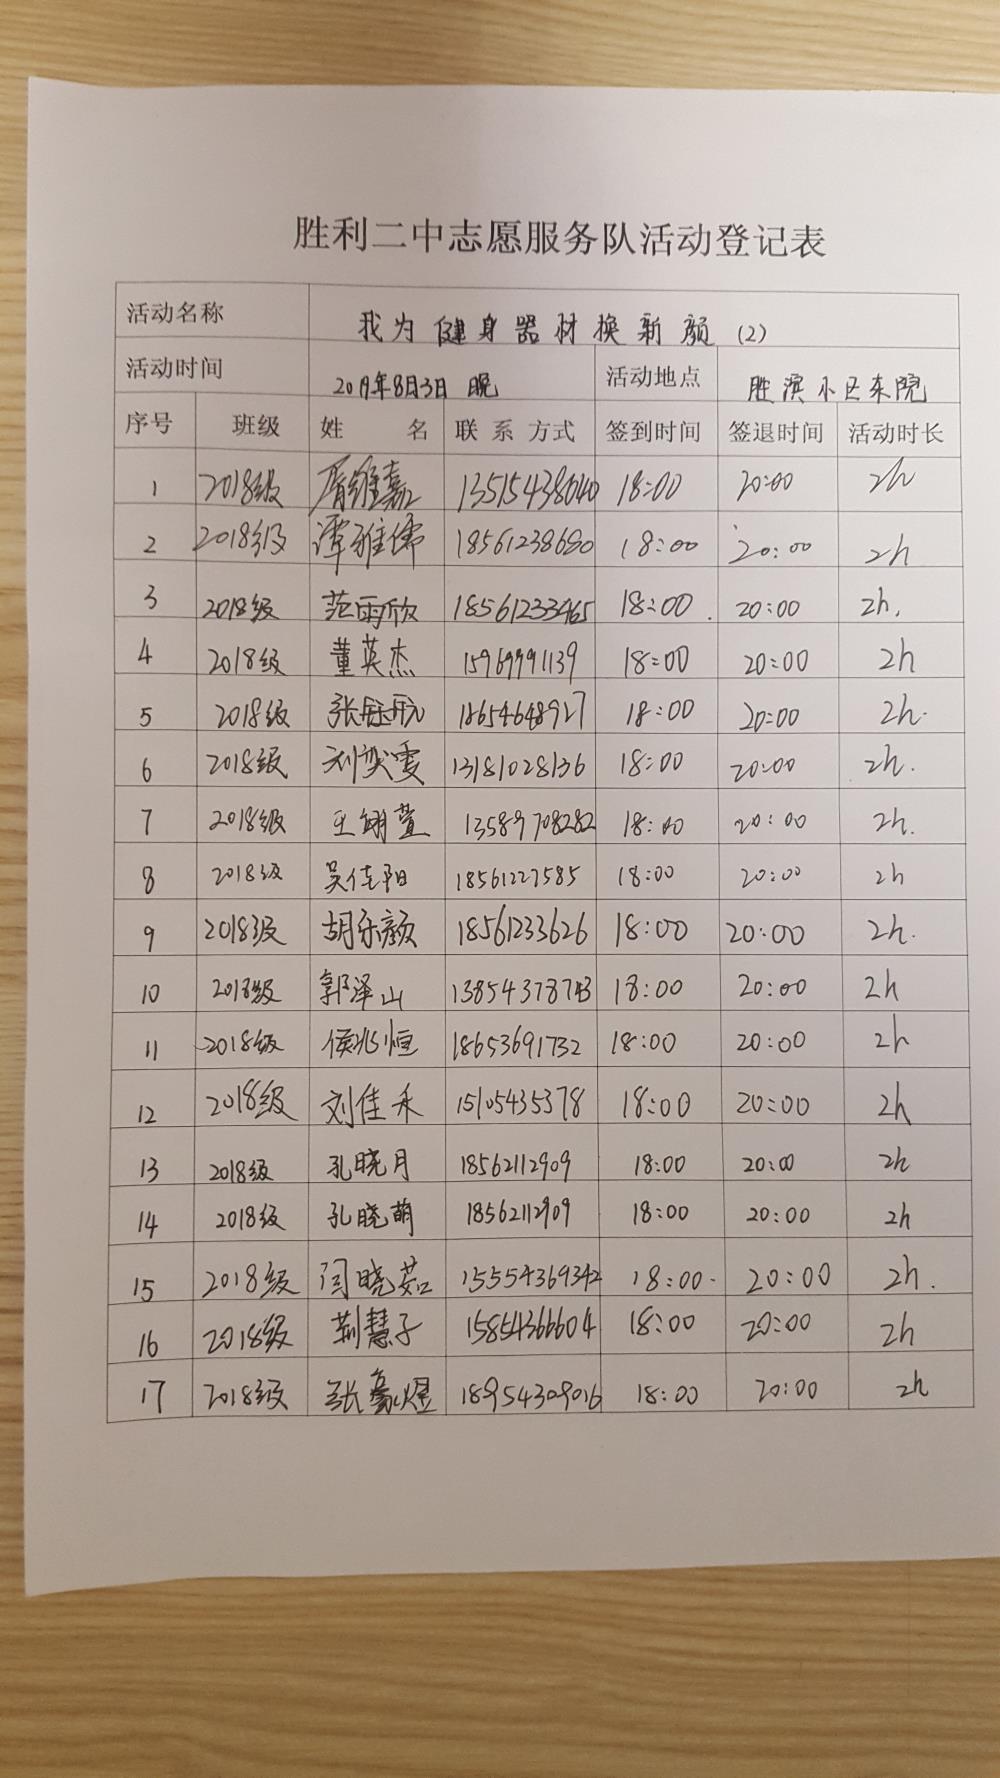 胜利二中志愿服务队活动登记表
活动名称 我为健身器材换新颜(2)
活动时间 2019年8月3日 晚 活动地点 胜滨小区东院
序号 班级 姓 名 联系方式 签到时间 签退时间 活动时长
1 2018级 胥维嘉 13515438640 18:00 20:00 2h
2 2018级 谭雅儒 18561238680 18:00 20:00 2h
3 2018级 范雨欣 18561233465 18:00 20:00 2h.
4 2018级 董英杰 15969991139 18:00 20:00 2h
5 2018级 张钰航 18654648927 18:00 20:00 2h.
6 2018级 刘奕雯 13181028136 18:00 20:00 2h.
7 2018级 王翊萱 13589708282 18:00 20:00 2h.
8 2018级 吴佳阳 18561227585 18:00 20:00 2h
9 2018级 胡乐颜 18561233626 18:00 20:00 2h.
10 2018级 郭泽山 13854378743 18:00 20:00 2h
11 2018级 侯兆恒 18653691732 18:00 20:00 2h
12 2018级 刘佳禾 15105435378 18:00 20:00 2h
13 2018级 孔晓月 18562112909 18:00 20:00 2h
14 2018级 孔晓萌 18562112909 18:00 20:00 2h
15 2018级 闫晓茹 15554369342 18:00 20:00 2h.
16 2018级 荆慧子 15854366604 18:00 20:00 2h
17 2018级 张豪煜 18954309016 18:00 20:00 2h